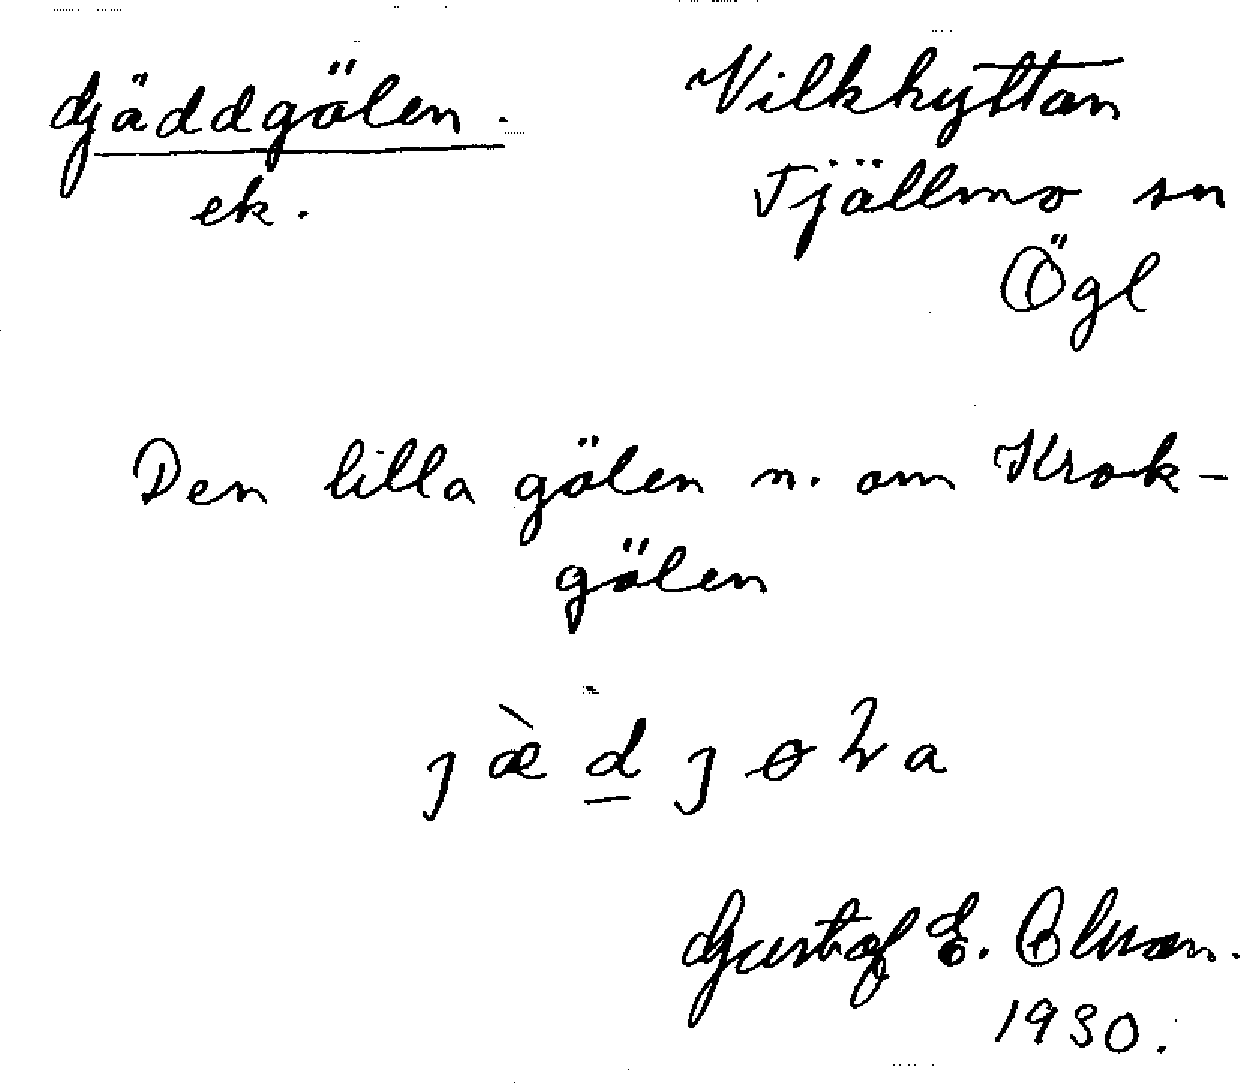 Gäddgölen.
ek.
Vilkhyttan
Tjällmo sn
Ögl
Den lilla gölen n. om Krok-
gölen
Gustaf E.
1930.